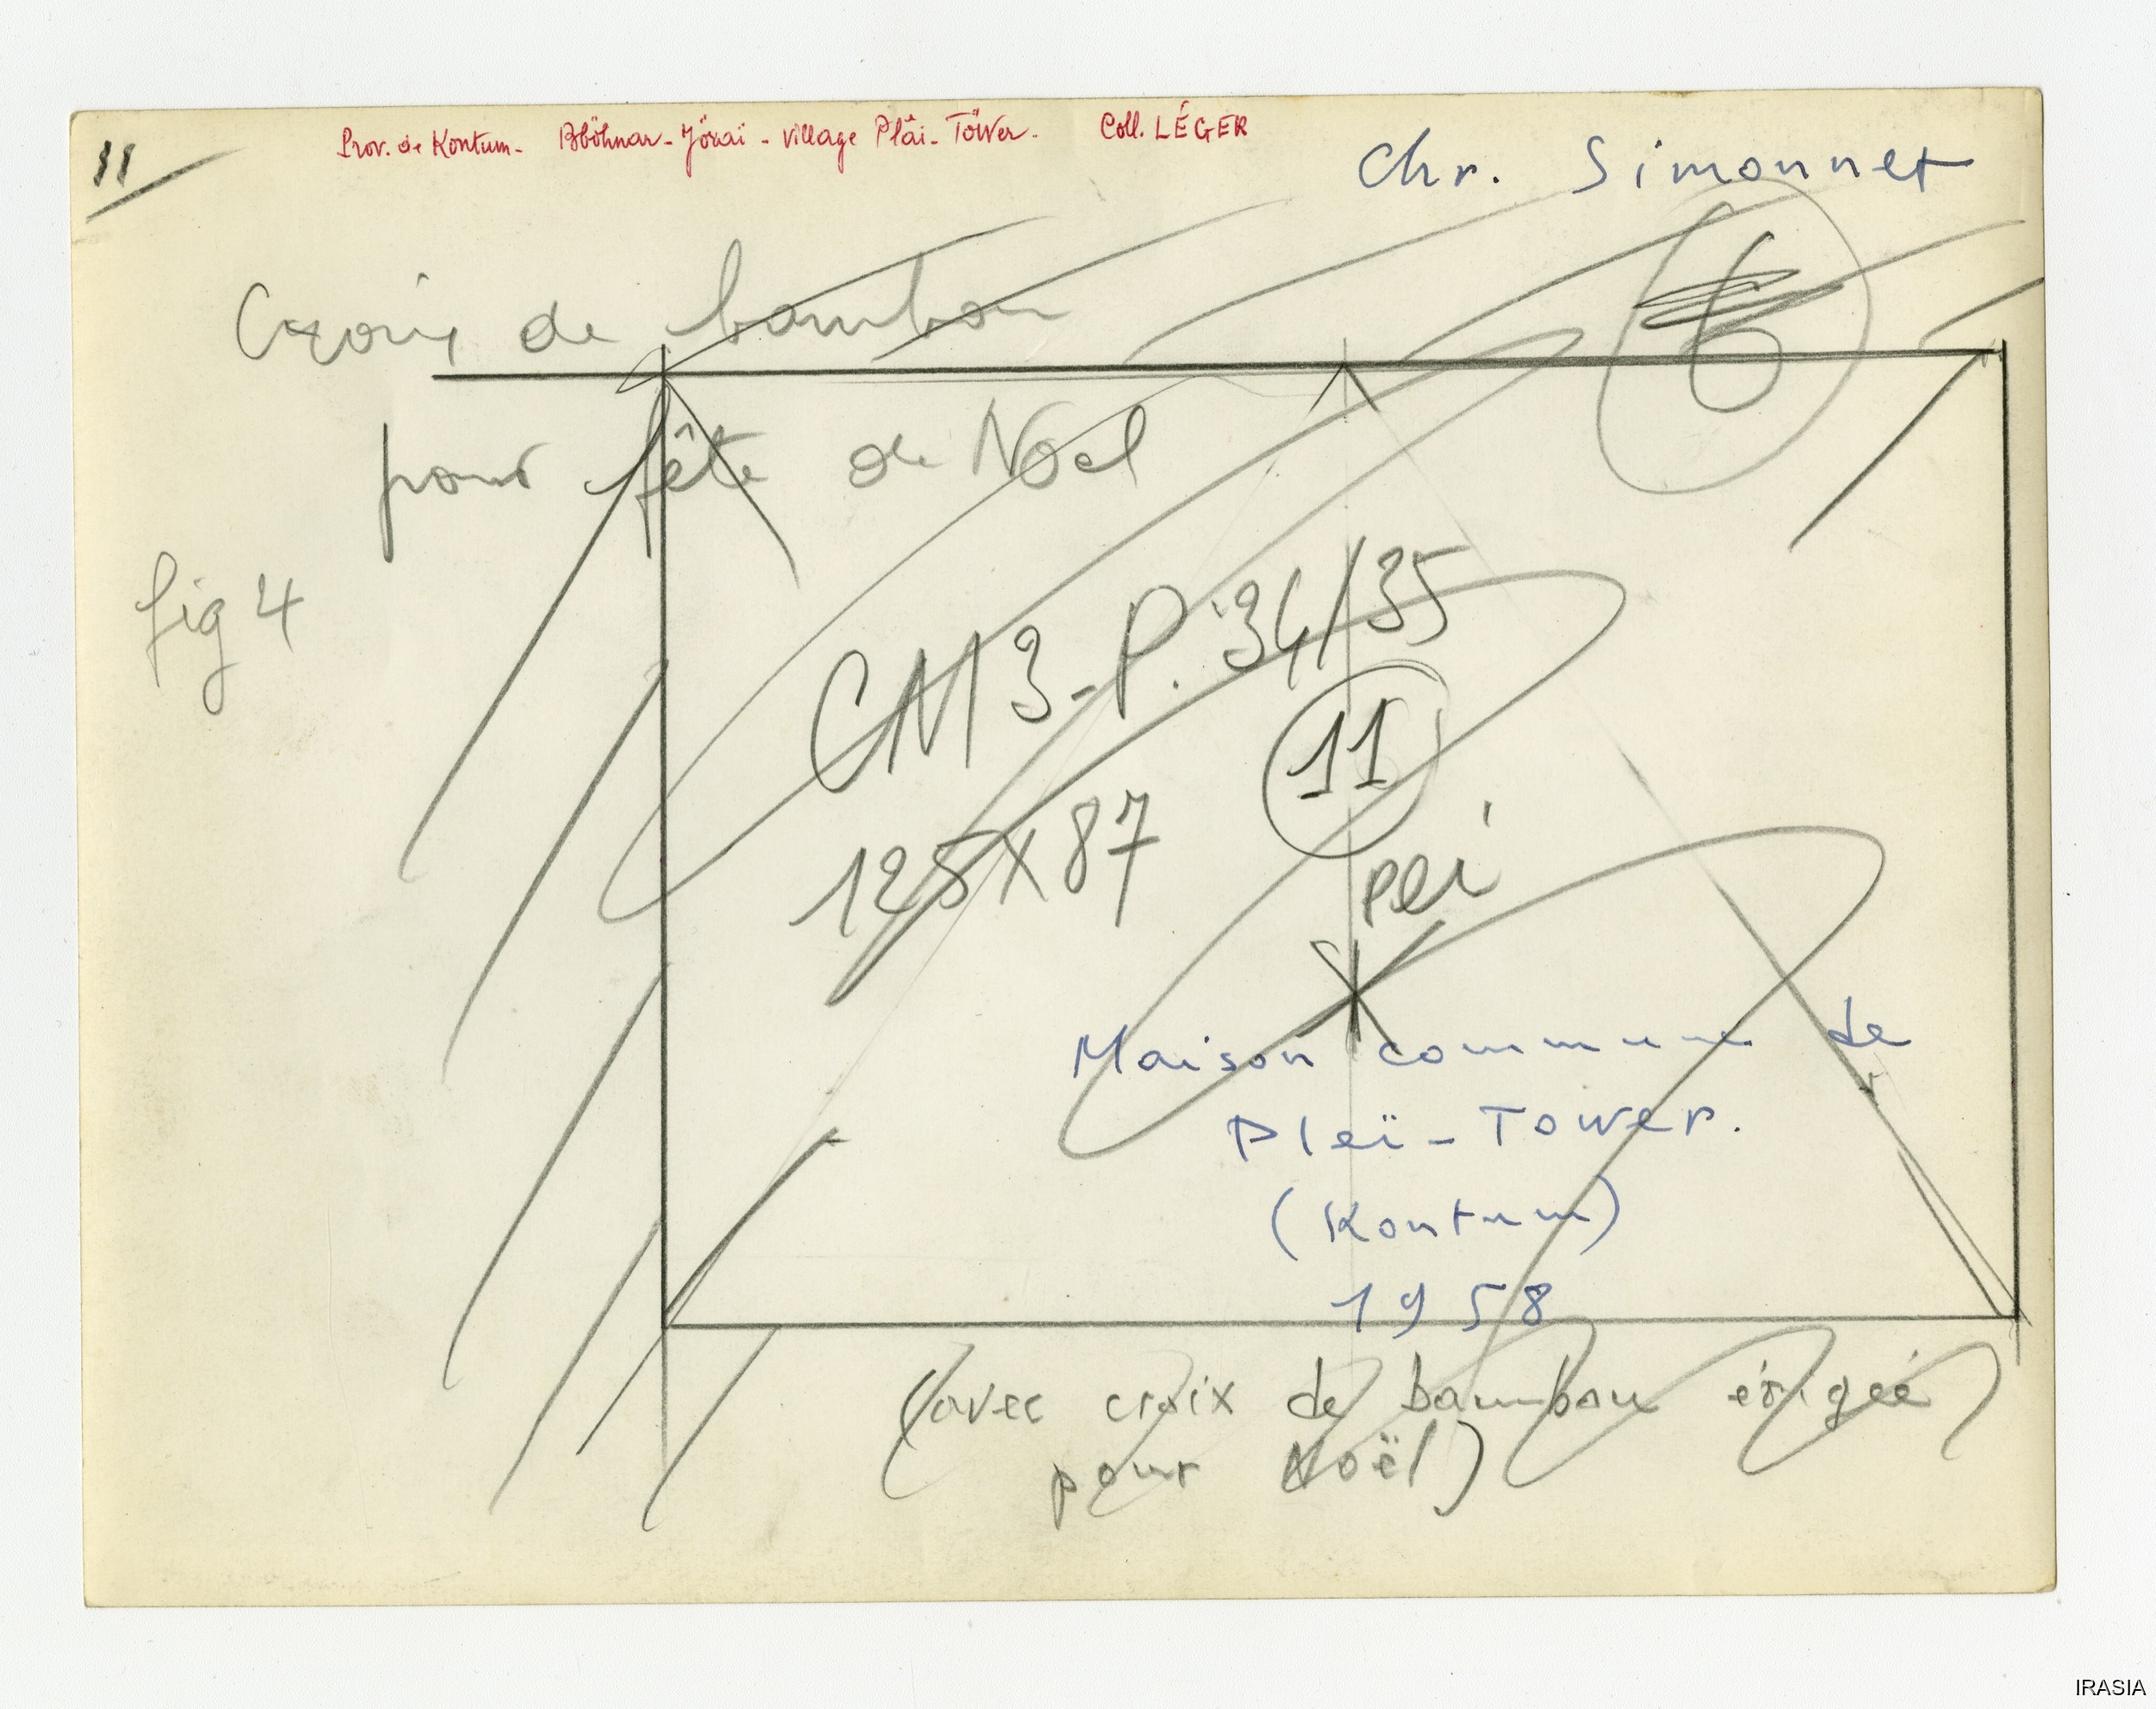 11
Prov. de Kontum - Bböhnar - Jöraï - village Plâi - Töwer. Coll. LÉGER
Chr. Simonnet
Croix de bambou
6
pour fête de Noel
fig 4
CM3-P.34/35
11
125X87
plei
Maison commune de
Pleï-Tower.
(Kontum)
1958
(avec croix de bambou érigée
pour Noël)
IRASIA